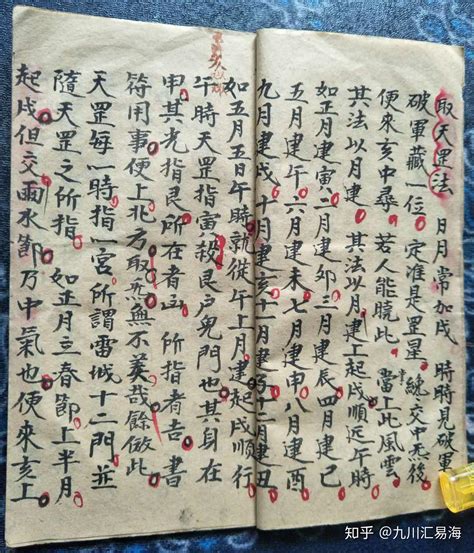 取天罡法 日月常加戌 時時見破軍
破軍藏一位 定准是罡星 纔交中炁後
便來亥中尋 若人能此 當上此風雲
其法以月建 其法以月建上起戌順近午時
如正月建寅二月建卯三月建辰四月建巳
五月建午六月建未七月建申八月建酉
九月建戌十月建亥十一月建子十二月建丑
如五月五日午時就從午上月建起戌順行
午時天罡指寅殺艮戶鬼門也其身在
申其光指艮所在者凶所指者吉 書
符用事便上北方取炁無不美哉餘倣此
天罡每一時指一宮所謂雷城十二門並
隨天罡之所指 如正月立春節上半月
起戌但交雨水節乃中氣也便來亥上
知乎 @九川汇易海